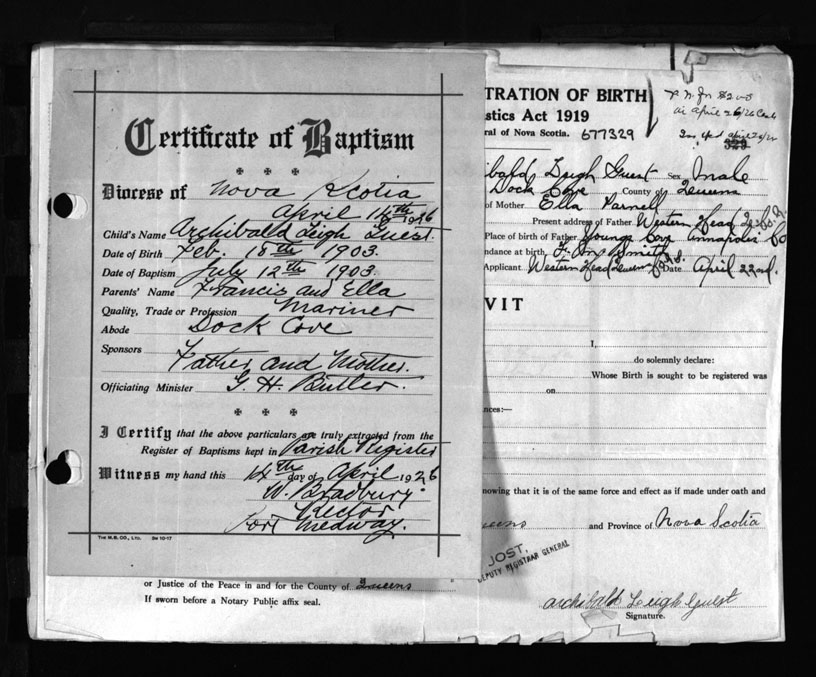 Certificate of Baptism
Diocese of Nova Scotia
April 14th 1926
Child's Name Archibald Leigh Guest.
Date of Birth Feb. 18th 1903.
Date of Baptism July 12th 1903.
Parents' Name Francis and Ella
Quality, Trade or Profession Mariner
Abode Dock Cove
Sponsors Father and Mother.
Officiating Minister G. H. Butler.
I Certify that the above particulars are truly extracted from the
Register of Baptisms kept in Parish Register
Witness my hand this 14th day of April 1926
W. Bradbury
Rector
Port Medway.
THE M.B. CO., LTD. 3M 10-17
TRATION OF BIRTH
stics Act 1919
ral of Nova Scotia. 677329
329
ibald Leigh Guest Sex Male
Dock Cove County of Queens
of Mother Ella Parnell
Present address of Father Western Head
Place of birth of Father Youngs Cove Annapolis Co
ndance at birth Smith
Applicant Western Head Queens Date April 22nd.
VIT
I,
do solemnly declare:
Whose Birth is sought to be registered was
on
nces:—
nowing that it is of the same force and effect as if made under oath and
eens and Province of Nova Scotia
JOST,
DEPUTY REGISTRAR GENERAL
or Justice of the Peace in and for the County of Queens
If sworn before a Notary Public affix seal.
Archibald Leigh Guest
Signature.